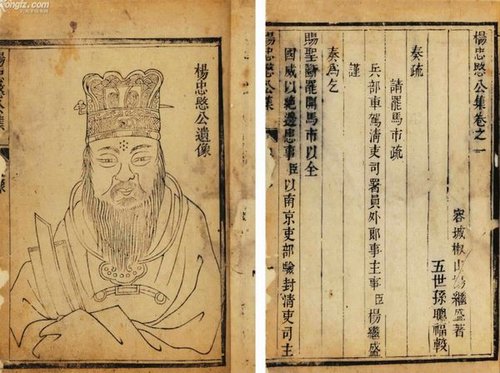 ongfz.com
楊忠愍公遺像
楊忠愍公集卷之一
容城椒山楊繼盛著
五世孫聰福較
奏疏
請罷馬市疏
兵部車駕清吏司署員外郎事主事臣楊繼盛
謹
奏為乞
賜聖斷罷開馬市以全
國威以絕邊患事臣以南京吏部驗封清吏司主
楊忠愍公集